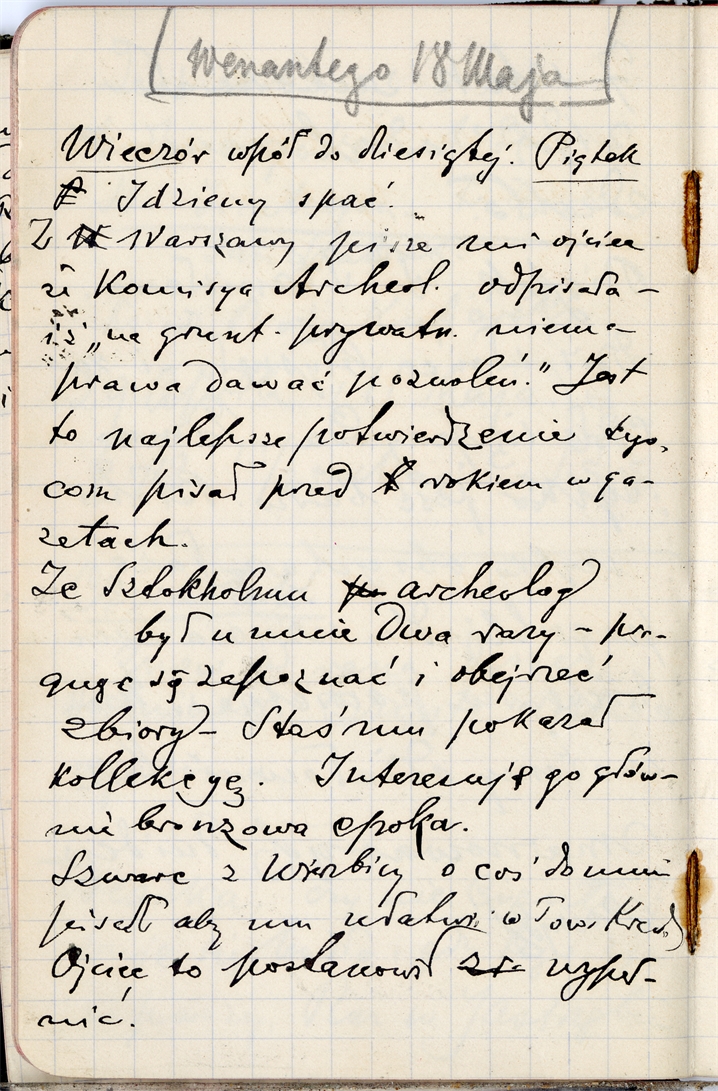 Wenantego 18 Maja
Wieczór wpół do dziesiątej. Piątek
Idziemy spać.
Z Warszawy pisze mi ojciec
że Komisya Archeol. odpisała –
iż „na grunt. prywatn. niema
prawa dawać pozwoleń." Jest
to najlepsze potwierdzenie tego,
com pisał przed rokiem w ga-
zetach.
Ze Sztokholmu archeolog
był u mnie dwa razy – pra-
gnąc się zapoznać i obejrzeć
zbiory – Staś mu pokazał
kollekcyę. Interesuje go głów-
nie bronzowa epoka.
Szwarc z Wierzbicy o coś do mnie
pisał aby mu ułatwić w Tow. Kred.
Ojciec to postanowił wypeł-
nić.